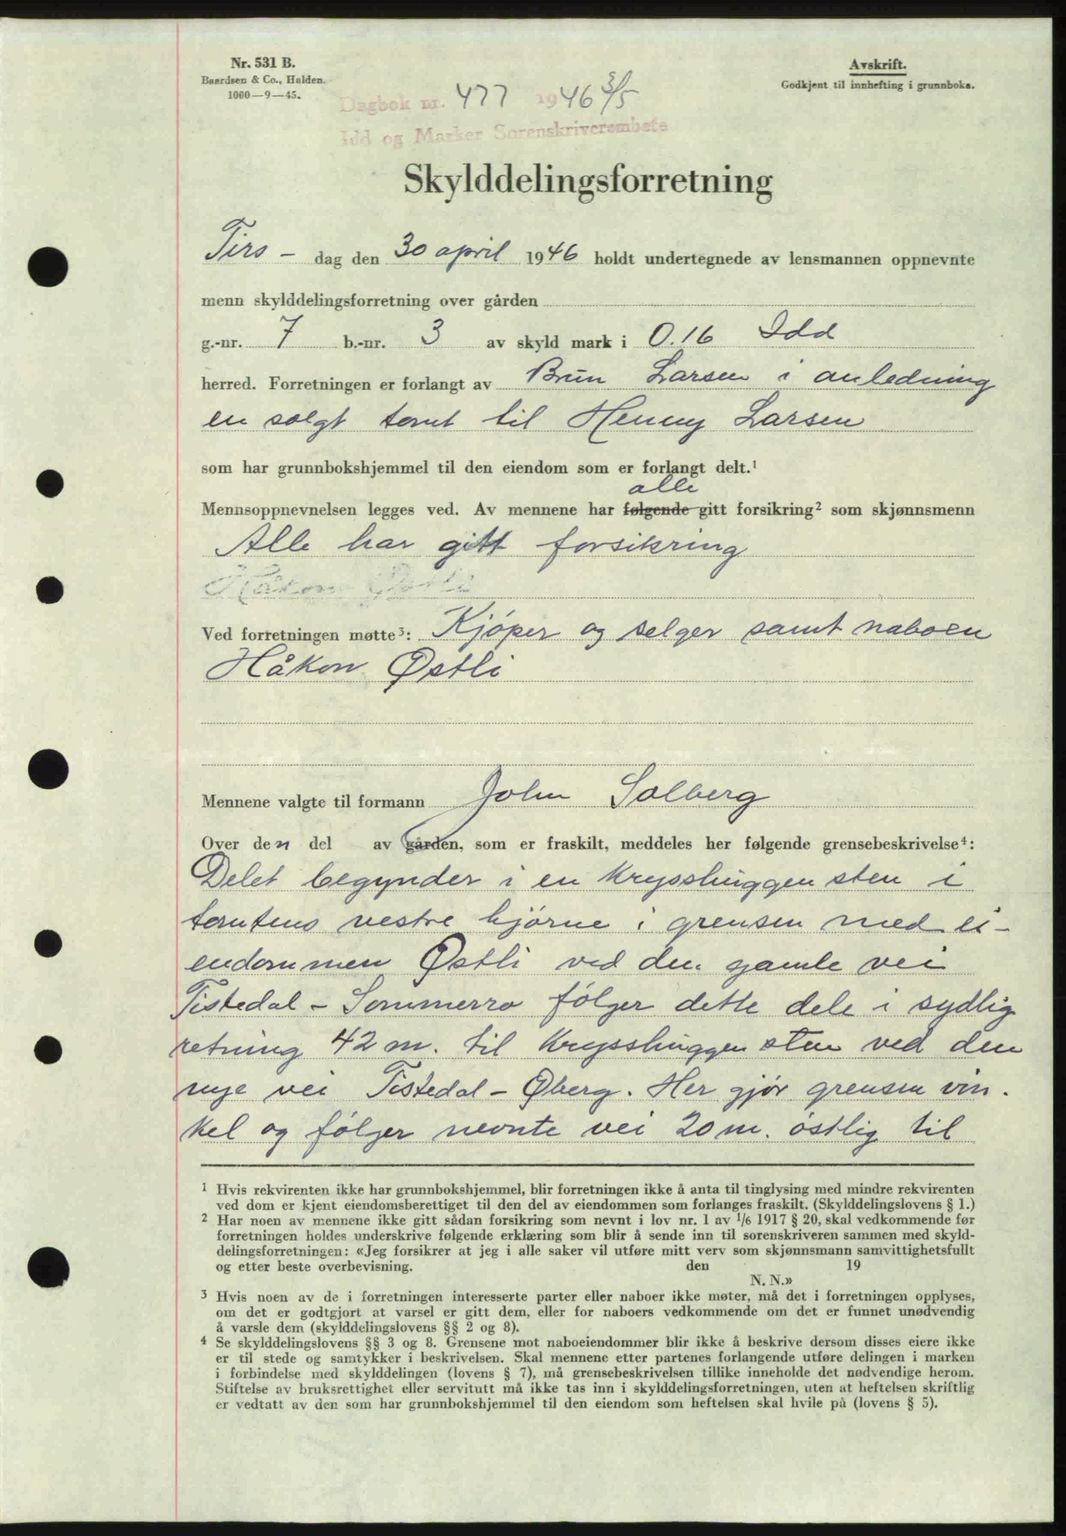 Nr. 531 B.
Baardsen & Co., Halden.
1000—9—45.
Avskrift.
Godkjent til innhefting i grunnboka.
Dagbok nr. 477 1946 3/5
Idd og Marker Sorenskriverembete
Skylddelingsforretning
Tirs - dag den 30 april 1946 holdt undertegnede av lensmannen oppnevnte
menn skylddelingsforretning over gården
g.-nr. 7 b.-nr. 3 av skyld mark i 0.16 Idd
herred. Forretningen er forlangt av Brun Larsen i anledning
en solgt tomt til Henny Larsen
som har grunnbokshjemmel til den eiendom som er forlangt delt.¹
alle
Mennsoppnevnelsen legges ved. Av mennene har følgende gitt forsikring² som skjønnsmenn
Alle har gitt forsikring
Håkon Østli
Ved forretningen møtte³: Kjøper og selger samt naboen
Håkon Østli
Mennene valgte til formann John Solberg
Over den del av gården, som er fraskilt, meddeles her følgende grensebeskrivelse⁴:
Delet begynder i en krysshuggen sten i
tomtens vestre hjørne i grensen med ei-
endommen Østli ved den gamle vei
Tistedal - Sommerro følger dette dele i sydlig
retning 42 m. til krysshuggen sten ved den
nye vei Tistedal - Øberg. Her gjør grensen vin-
kel og følger nevnte vei 20 m. østlig til
¹ Hvis rekvirenten ikke har grunnbokshjemmel, blir forretningen ikke å anta til tinglysing med mindre rekvirenten
ved dom er kjent eiendomsberettiget til den del av eiendommen som forlanges fraskilt. (Skylddelingslovens § 1.)
² Har noen av mennene ikke gitt sådan forsikring som nevnt i lov nr. 1 av 1/6 1917 § 20, skal vedkommende før
forretningen holdes underskrive følgende erklæring som blir å sende inn til sorenskriveren sammen med skyld-
delingsforretningen: «Jeg forsikrer at jeg i alle saker vil utføre mitt verv som skjønnsmann samvittighetsfullt
og etter beste overbevisning. den 19
N. N.»
³ Hvis noen av de i forretningen interesserte parter eller naboer ikke møter, må det i forretningen opplyses,
om det er godtgjort at varsel er gitt dem, eller for naboers vedkommende om det er funnet unødvendig
å varsle dem (skylddelingslovens §§ 2 og 8).
⁴ Se skylddelingslovens §§ 3 og 8. Grensene mot naboeiendommer blir ikke å beskrive dersom disses eiere ikke
er til stede og samtykker i beskrivelsen. Skal mennene etter partenes forlangende utføre delingen i marken
i forbindelse med skylddelingen (lovens § 7), må grensebeskrivelsen tillike inneholde det nødvendige herom.
Stiftelse av bruksrettighet eller servitutt må ikke tas inn i skylddelingsforretningen, uten at heftelsen skriftlig
er vedtatt av den som har grunnbokshjemmel til den eiendom som heftelsen skal hvile på (lovens § 5).